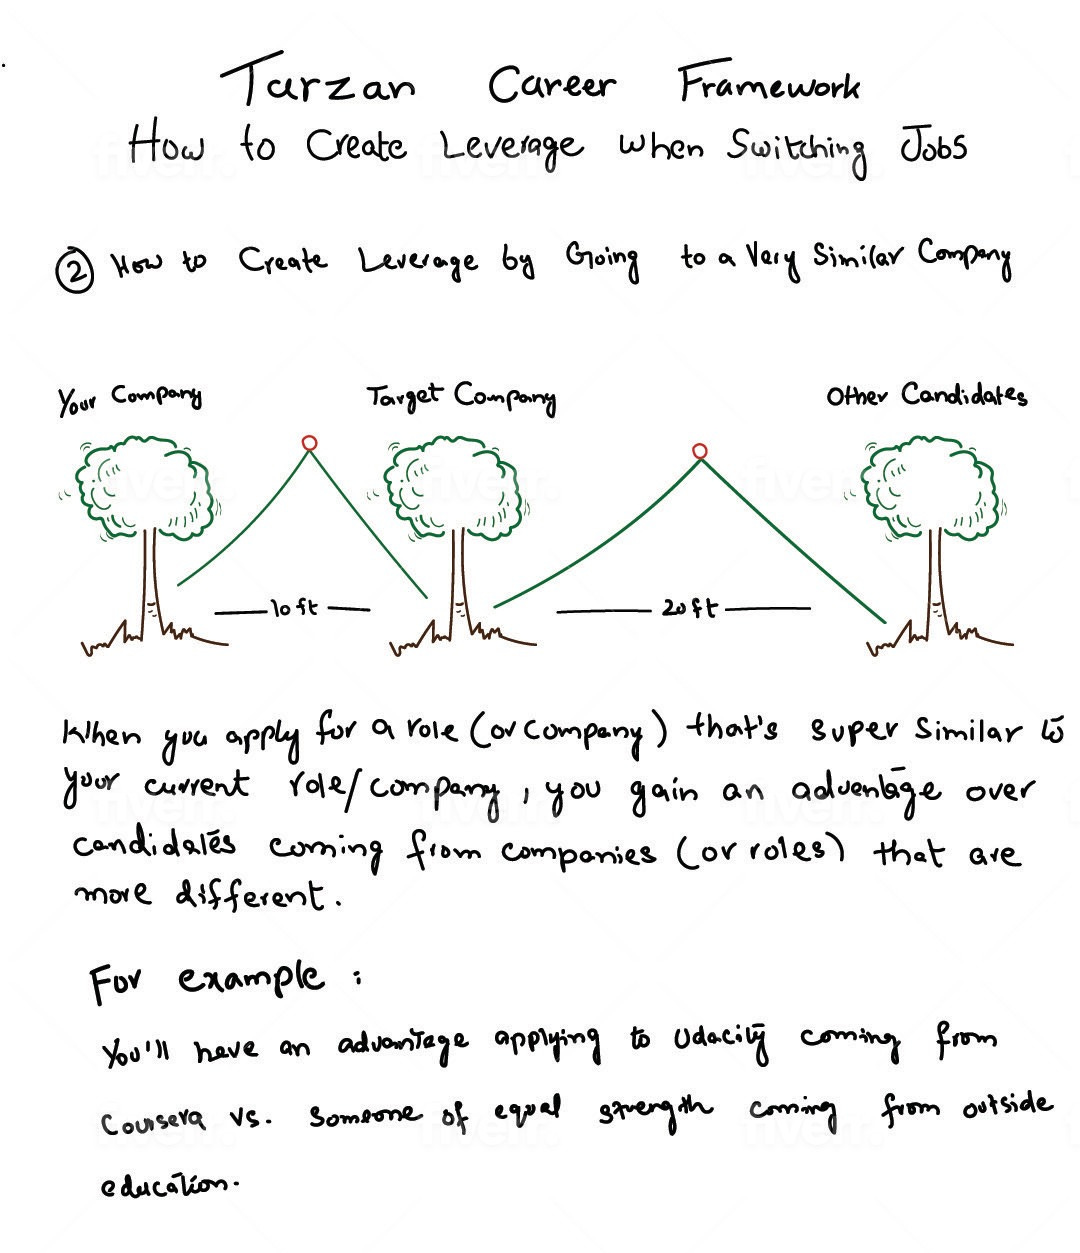 Tarzan Career Framework
How to Create Leverage when Switching Jobs
2 How to Create Leverage by Going to a Very Similar Company
Your Company Target Company Other Candidates
10 ft 20 ft
When you apply for a role (or company) that's super similar to
your current role/company, you gain an advantage over
candidates coming from companies (or roles) that are
more different.
For example :
You'll have an advantage applying to Udacity coming from
Coursera vs. someone of equal strength coming from outside
education.